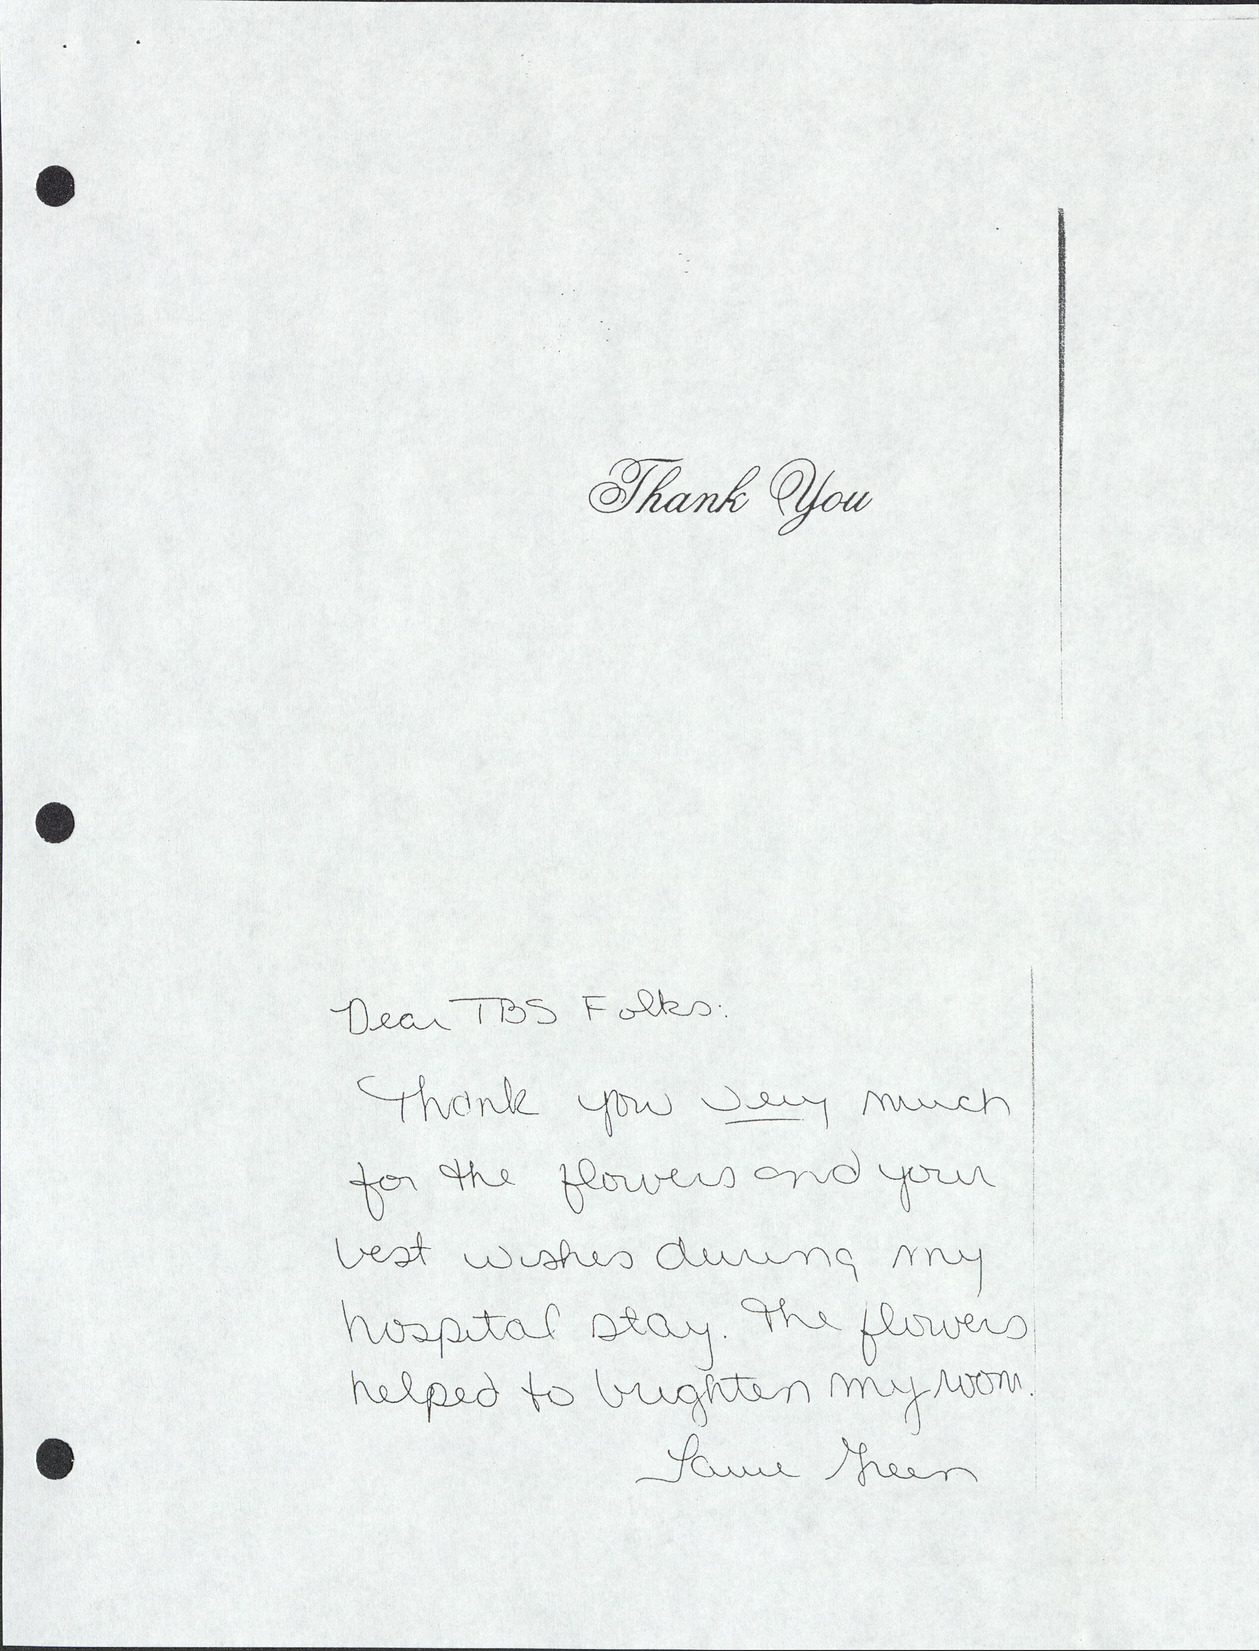 Thank You
Dear TBS Folks:
Thank you very much
for the flowers and your
best wishes during my
hospital stay. The flowers
helped to brighten my room.
Laurie Green